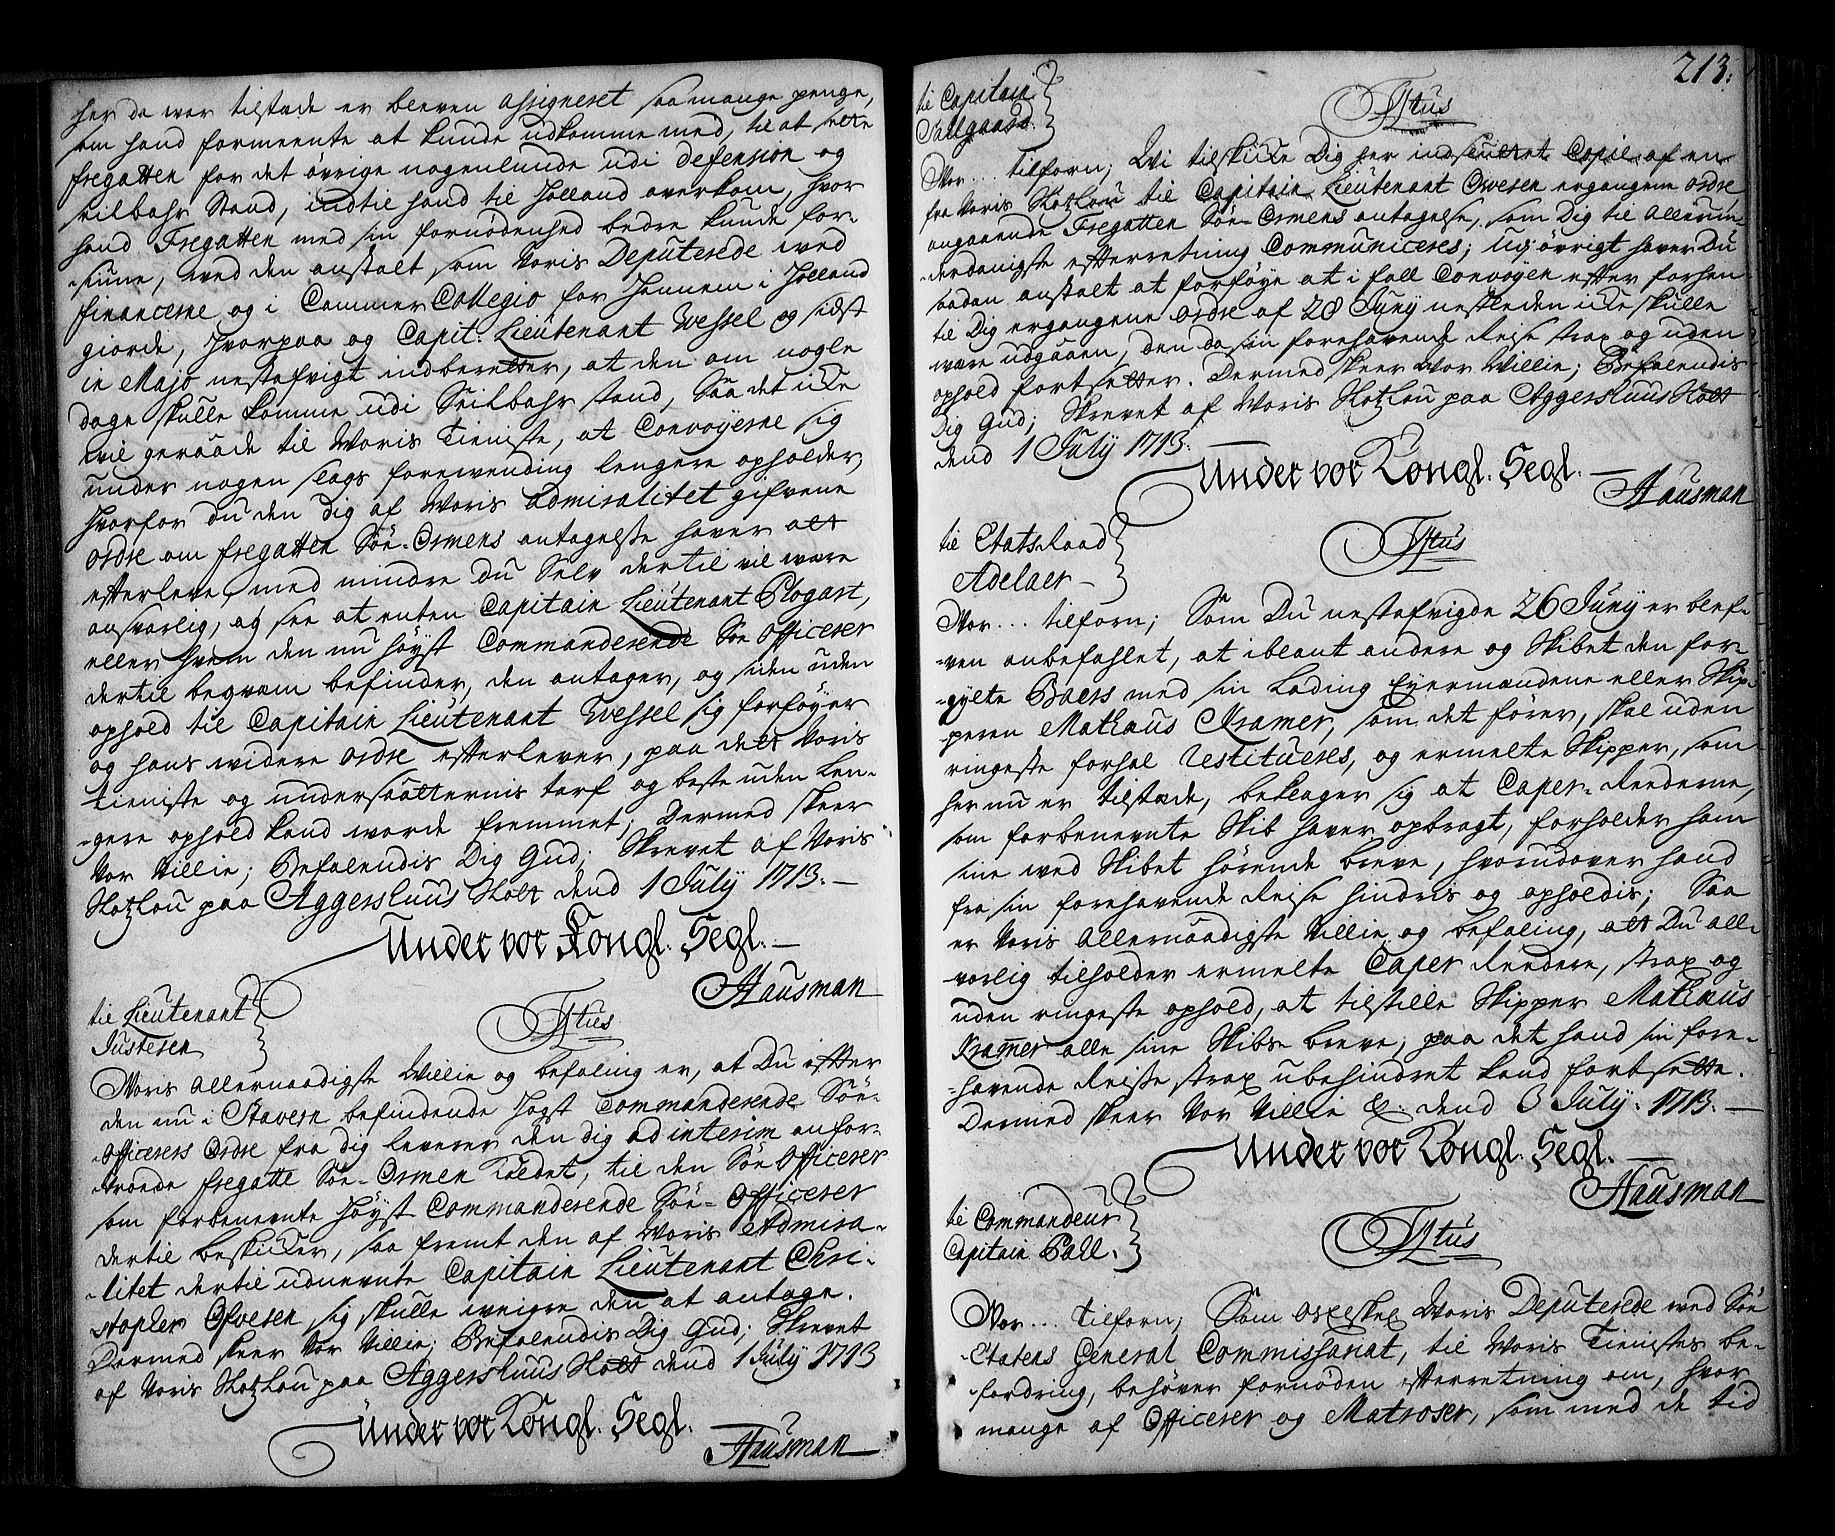 her da var tilstæde er bleven assigneret saa mange penge,
som hand formeente at kunde udkomme med, til at sette
fregatten for det øvrige nogenlunde udi defension og
seilbahr stand, indtil hand til Holland overkom, hvor
hand Fregatten med sin fornødenhed bedre kunde for-
-siune, ved den anstalt som Voris Deputerede ved
financerne og i Cammer Collegio for Hannem i Holland
giorde, Hvorpaa og Capit: Lieutenant Wessel og sidst
in Majo nestafvigt indberetter, at den om nogle
dage skulle komme udi Seilbahr stand, Saa det icke
vil geraade til Voris Tieniste, at Convoyerne sig
under nogen slags forevending lengere opholder,
Hvorfor du den dig af Voris Admiralitet gifvene
ordre om fregatten Søe-Ormens antagelse haver at
efterleve, med mindre du Selv dertil vil være
ansvarlig, og see at enten Capitain Lieutenant Plogart,
eller hvem den nu høyst Commanderende Søe Officerer
dertil beqvæm befinder, den antager, og siden uden
ophold til Capitain Lieutenant Wessel sig forføyer
og hans videre ordre efterlever, paa dett Voris
tieniste og undersaatternis tarf og beste uden len-
-gere ophold kand vorde fremmet; Dermed skeer
Vor Villie; Befalendis Dig Gud; Skrevet af Voris
Slotzlou paa Aggershuus Slott dend 1 July 1713. —
Under vor Kongl. Segl. —
Hausman
til Lieutenant
Justesen
Tytus
Woris Allernaadigste Villie og befaling er, at Du efter
den nu i Stavern befindende høyst Commanderende Søe-
-Officerers Ordre fra dig leverer den dig ad interim anfor-
-troede fregatte Søe-Ormen Kaldet, til den Søe Officerer
som forbenevnte Høyst Commanderende Søe-Officerer
dertil beskicker, saa fremt den af Voris Admira-
-litet dertil udnevnte Capitain Lieutenant Chri-
stopher Ofvesen sig skulle veigre den at antage.
Dermed skeer Vor Villie; Befalendis Dig Gud; Skrevet
af Voris Slotzlou paa Aggershuus Slott dend 1 July 1713
Under vor Kongl. Segl.
Hausman
213.
til Capitain
Tytus
Vor... tilforn; Vi tilskicke Dig her indsluttet Copie af en
fra Voris Slotzlou til Capitain Lieutenant Ovesen ergangene ordre
angaaende Fregatten Søe-Ormens antagelse, som Dig til Allerun-
-derdanigste efterretning Communiceres; Udj øvrigt haver Du
sadan anstalt at forføye at i fall Convoyen efter forhen
til Dig ergangene ordre af 28 Juny nestleden icke skulle
være udgaaen, den da sin forehavende Reise strax og uden
ophold fortsetter. Dermed skeer Vor Villie; Befalendis
Dig Gud; Skrevet af Voris Slotzlou paa Aggershuus Slott
dend 1 July 1713. —
Under vor Kongl. Segl. —
Hausman
til Etats Raad
Adelaer —
Tytus
Vor... tilforn; Som Du nestafvigde 26 Juny er blef-
-ven anbefahlet, at iblant andere og Skibet den for-
-gylte Baers med sin Lading Eyermændene eller Skip-
peren Mathæus Kramer, som det fører, skal uden
ringeste forhal Restitueres, og ermelte Skipper, som
her nu er tilstæde, beklager sig at Caper-Reederne,
som forbenevnte Skib haver opbragt, forholder ham
sine ved Skibet hørende breve, hvorudover hand
fra sin forehavende Reise hindris og opholdis; Saa
er Voris Allernaadigste Villie og befaling, att Du all-
vorlig tilholder ermelte Caper Reedere, strax og
uden ringeste ophold, at tilstille Skipper Mathæus
Kramer alle sine Skibs-breve, paa det hand sin fore-
-havende Reise strax ubehindret kand fortsette.
Dermed skeer Vor Villie &. dend 6 July. 1713. —
Under vor Kongl. Segl. —
Hausman
til Commandeur
Capitain Pall.
Tytus
Vor... tilforn; Som Voris Deputerede ved Søe
-Etatens General Commissariat, til Voris Tienistes be-
-fordring, behøver fornøden efterretning om, hvor
mange af Officerer og Matroser, som med de tid